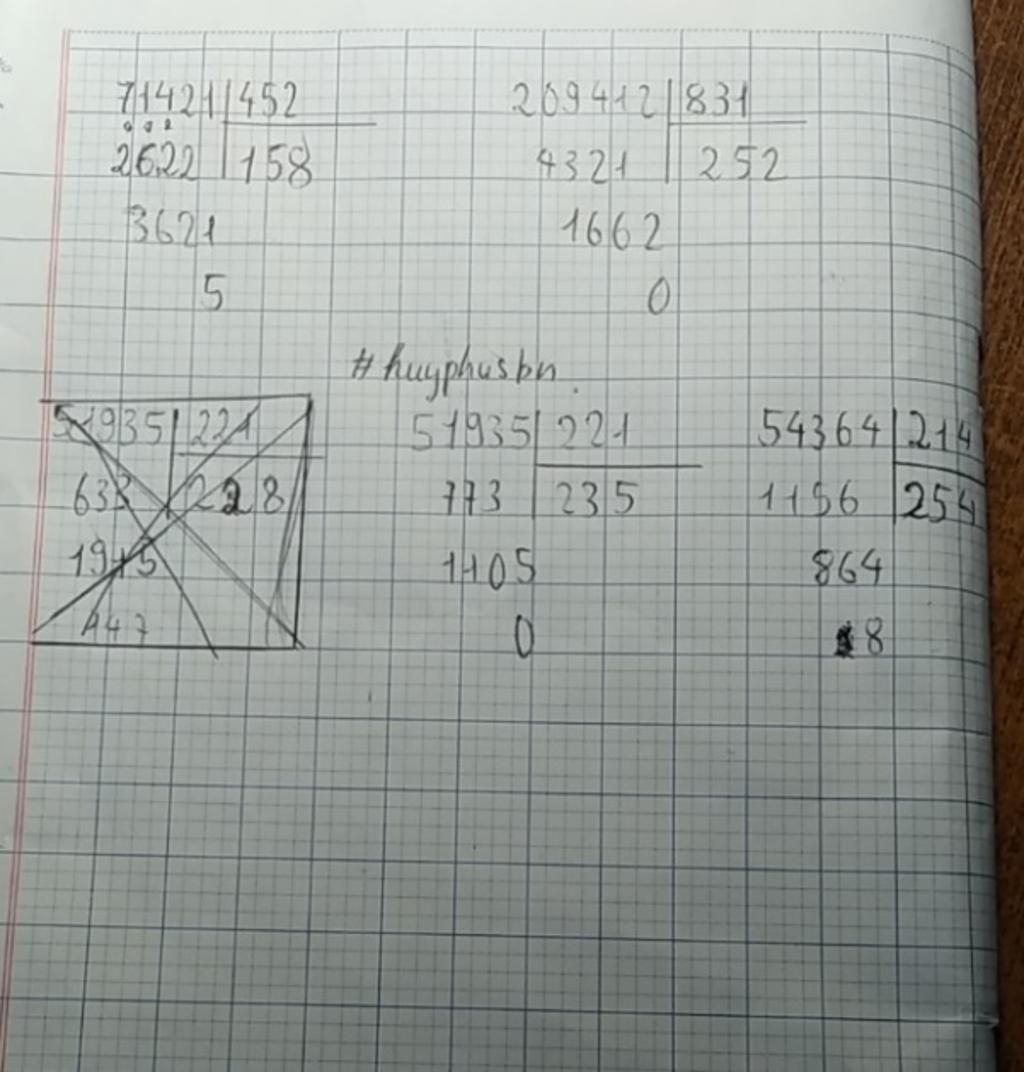 71421 452
2622 158
3621
5
209412 831
4321 252
1662
0
#huyphusbn.
51935 221
633 228
1915
447
51935 221
773 235
1105
0
54364 214
1156 254
864
8